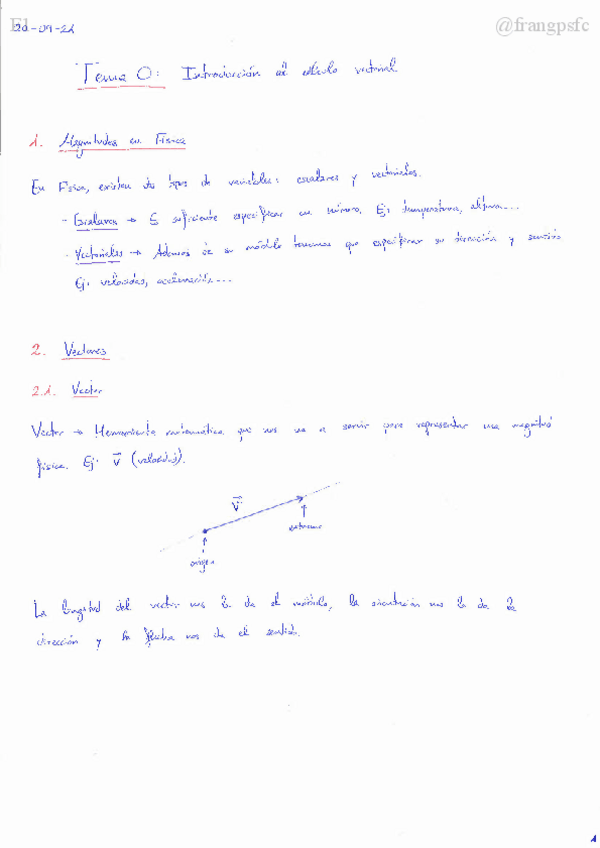 El
@frangpsfc
20-09-21
Tema 0: Introducción al cálculo vectorial
1. Magnitudes en Física
En Física, existen dos tipos de variables: escalares y vectoriales.
- Escalares → Es suficiente especificar un número. Ej: temperatura, altura...
- Vectoriales → Además de su módulo tenemos que especificar su dirección y sentido
Ej: velocidad, aceleración...
2. Vectores
2.1. Vector
Vector → Herramienta matemática que nos va a servir para representar una magnitud
física. Ej: v⃗ (velocidad).
v⃗
extremo
origen
La longitud del vector nos la da el módulo, la orientación nos la da la
dirección y la flecha nos da el sentido.
1